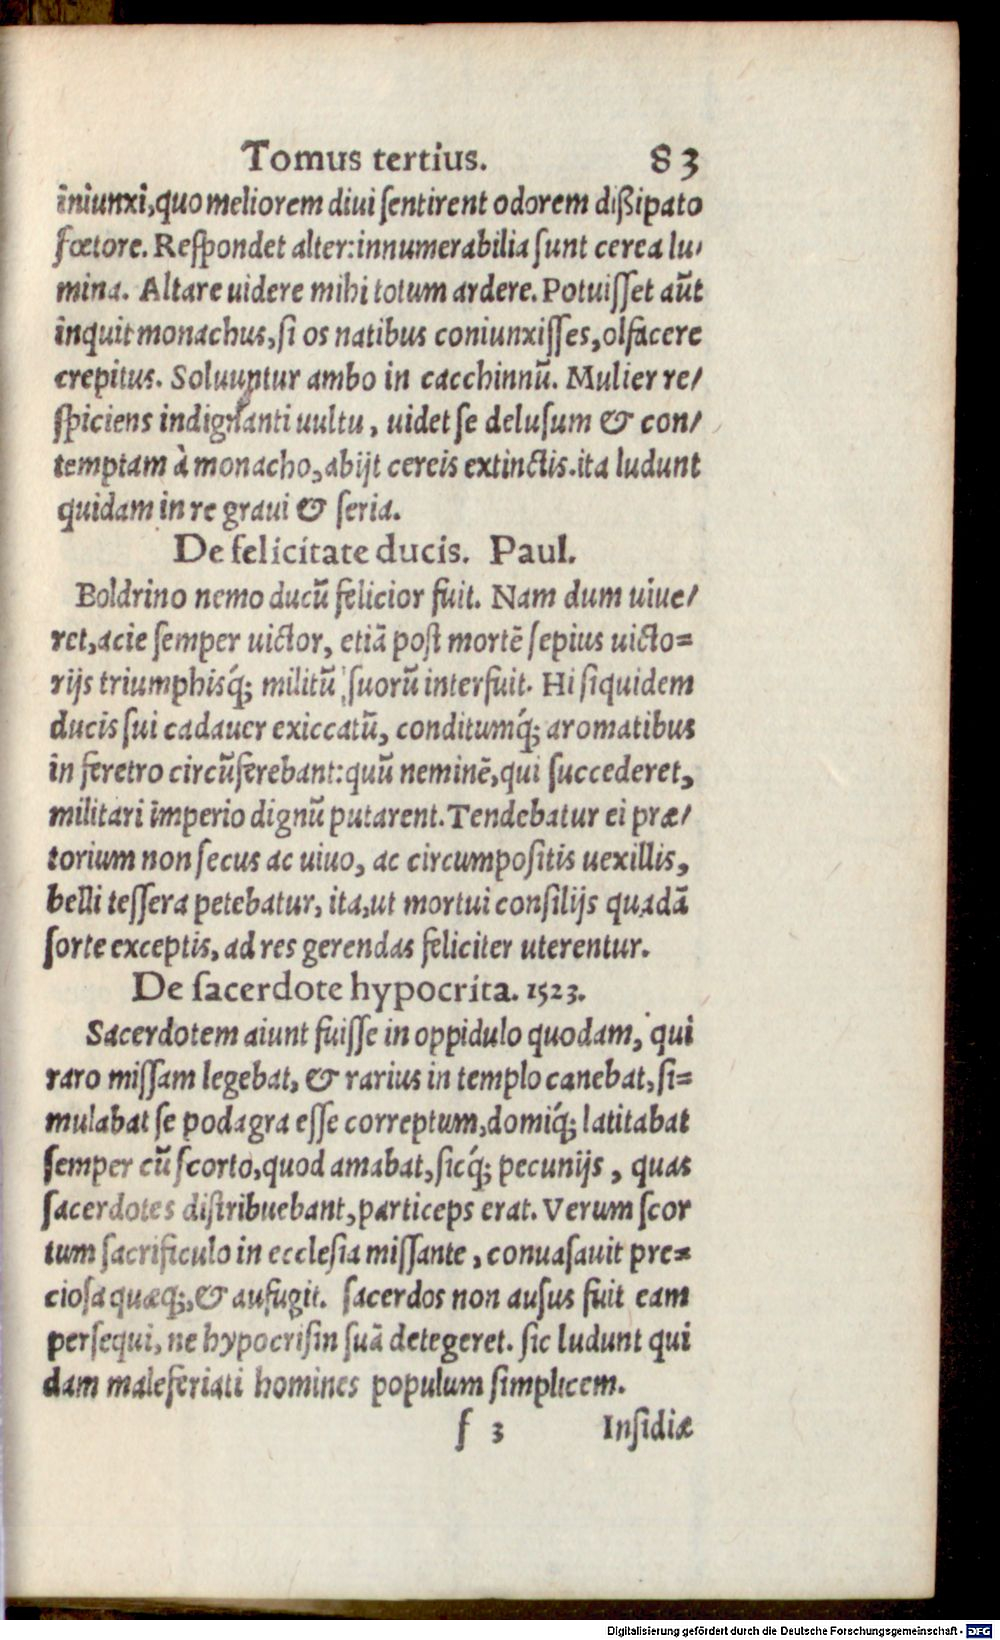 Tomus tertius. 83
iniunxi, quo meliorem diui ſentirent odorem dißipato
fœtore. Reſpondet alter: innumerabilia ſunt cerea lu/
mina. Altare uidere mihi totum ardere. Potuiſſet aūt
inquit monachus, ſi os natibus coniunxiſſes, olfacere
crepitus. Soluuntur ambo in cacchinnū. Mulier re/
ſpiciens indignanti uultu, uidet ſe deluſum & con/
temptam à monacho, abijt cereis extinctis. ita ludunt
quidam in re graui & ſeria.
De felicitate ducis. Paul.
Boldrino nemo ducū felicior fuit. Nam dum uiue/
ret, acie ſemper uictor, etiā poſt mortē ſepius uicto=
rijs triumphisq́; militū ſuorū interfuit. Hi ſiquidem
ducis ſui cadauer exiccatū, conditumq́; aromatibus
in feretro circūferebant: quū neminē, qui ſuccederet,
militari imperio dignū putarent. Tendebatur ei præ/
torium non ſecus ac uiuo, ac circumpoſitis uexillis,
belli teſſera petebatur, ita, ut mortui conſilijs quadā
ſorte exceptis, ad res gerendas feliciter uterentur.
De ſacerdote hypocrita. 1523.
Sacerdotem aiunt fuiſſe in oppidulo quodam, qui
raro miſſam legebat, & rarius in templo canebat, ſi=
mulabat ſe podagra eſſe correptum, domiq́; latitabat
ſemper cū ſcorto, quod amabat, ſicq́; pecunijs, quas
ſacerdotes diſtribuebant, particeps erat. Verum ſcor
tum ſacrificulo in eccleſia miſſante, conuaſauit pre=
cioſa quæq;, & aufugit. ſacerdos non auſus fuit eam
perſequi, ne hypocriſin ſuā detegeret. ſic ludunt qui
dam maleferiati homines populum ſimplicem.
f 3 Inſidiæ
Digitalisierung gefördert durch die Deutsche Forschungsgemeinschaft - DFG